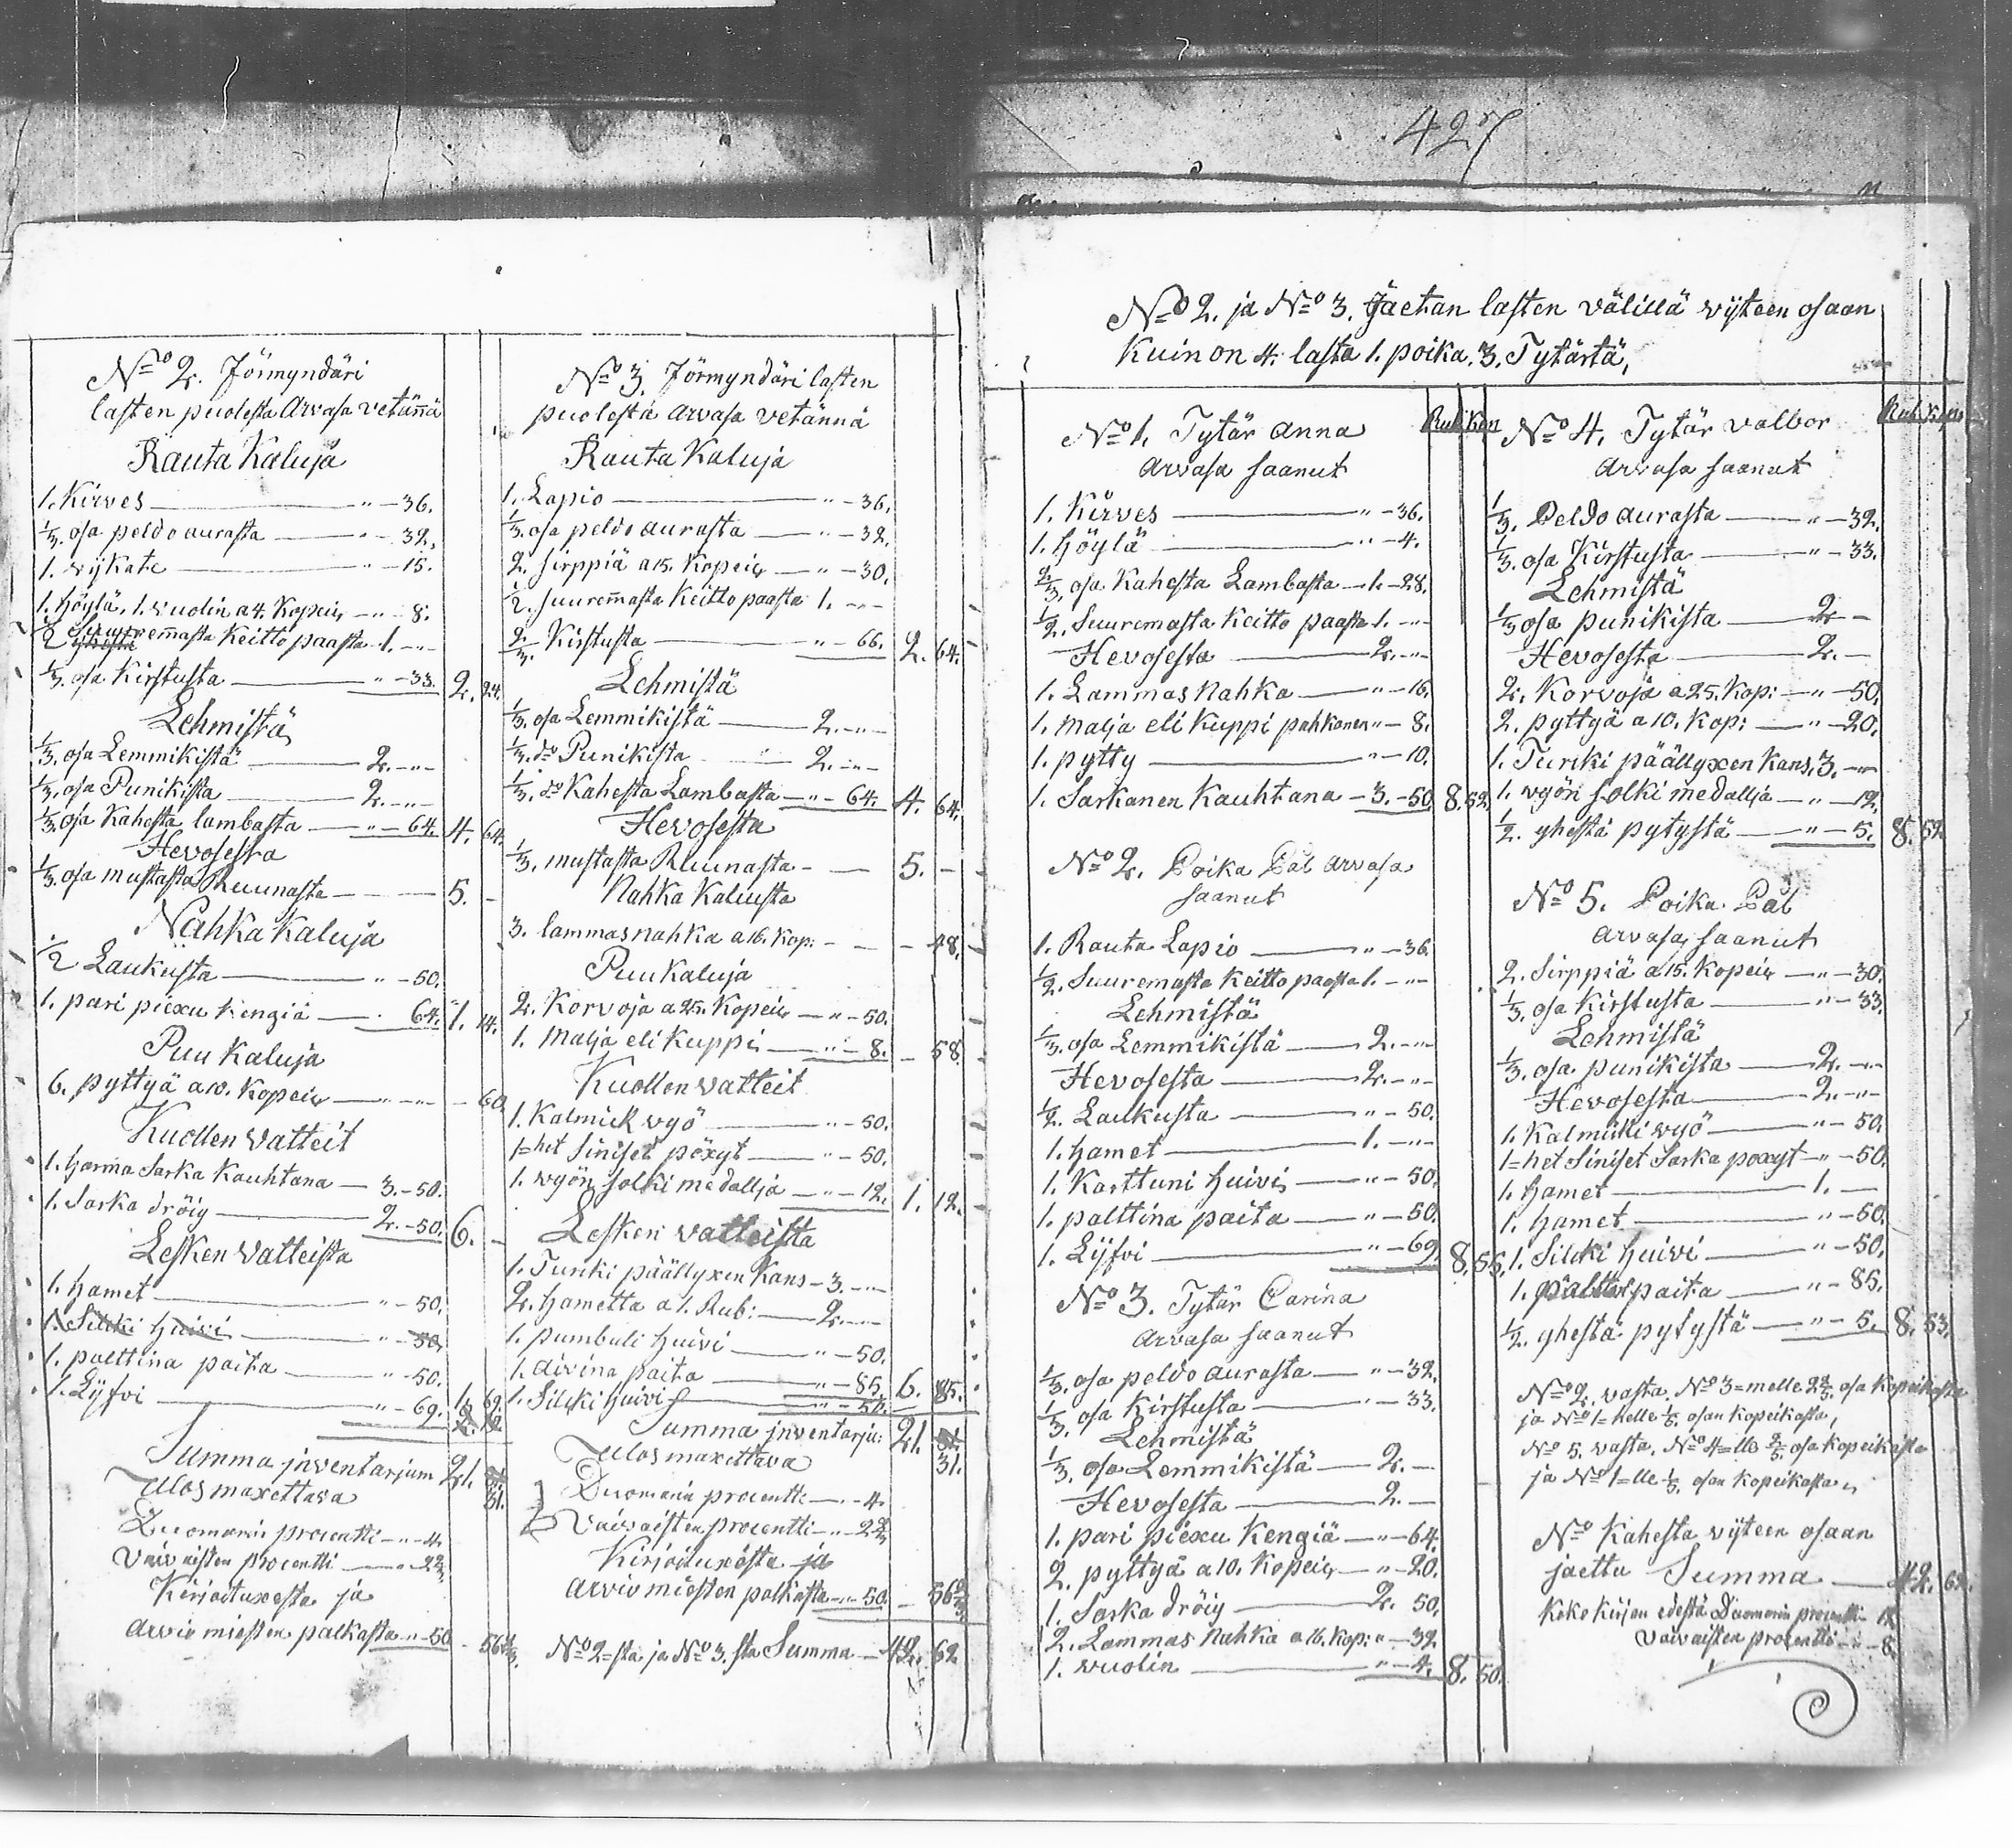 427
N=o 2. Förmyndäri
lasten puolesta Arvasa vetännä
Rauta Kaluja
1. Kirves " - 36.
1/3. osa peldo aurasta " - 32.
1. wijkate " - 15.
1. höylä, 1. vuolin a 4. Kopeix - " - 8.
1/2 yhestä Suuremasta Keitto paasta - 1. - "
1/3. osa Kirstusta " - 33. 2. 24.
Lehmistä
1/3. osa Lemmikistä 2. - "
1/3. osa Punikista 2. - "
1/3. osa Kahesta lambasta " - 64. 4. 64.
Hevosesta
1/3. osa mustasta Ruunasta 5. -
Nahka Kaluja
1/2 Laukusta " - 50.
1. pari piexu kengiä 64. 1. 14.
Puu Kaluja
6. pyttyä a 10. Kopeix - 60.
Kuollen Vatteit
1. harma Sarka Kauhtana - 3. - 50.
1. Sarka dröig 2. - 50. 6. -
Lesken Vatteista
1. hamet " - 50.
1. Silkki Huivi " - 50.
1. palttina paita " - 50.
1. Lijfvi " - 69. 1. 69.
Summa jnventarjum 21. 31.
Ulosmaxettava
Duomarin procentti - " - 4.
Vaivaisten procentti - " - 2 2/3.
Kirjoituxesta ja
arvio miesten palkasta " - 50 - 56 2/3.
N=o 3. Förmyndäri lasten
puolesta arvasa vetännä
Rauta Kaluja
1. Lapio " - 36.
1/3. osa peldo aurasta " - 32.
2. sirppiä a 15. Kopeix - " - 30.
1/2. suuremasta Keitto paasta 1. - "
2/3. Kirstusta " - 66. 2. 64.
Lehmistä
1/3. osa Lemmikistä 2. - "
1/3. do Punikista 2. - "
1/3. do Kahesta Lambasta - " - 64. 4. 64.
Hevosesta
1/3. mustasta Ruunasta - 5. -
Nahka Kaluista
3. lammasnahka a 16. Kop: - - 48.
Puu Kaluja
2. Korvoja a 25. Kopeix - " - 50.
1. Malja eli Kuppi " - 8. - 58.
Kuollen vatteit
1. Kalmick vyö " - 50.
1=het Siniset pöxyt " - 50.
1. wyön solki medallja - " - 12. 1. 12.
Lesken vatteista
1. Turcki päällyxen Kans - 3. - "
2. hametta a 1. Rub: 2. - "
1. pumbuli huivi " - 50.
1. aivina paita " - 85. 6. 85.
1. Silcki huivi " - 50.
Summa jnventarju: 21. 31.
Ulosmaxettava
Duomarin procentti - " - 4.
Vaivaisten procentti - " - 2 2/3
Kirjoituxesta ja
arvio miesten palkasta - " - 50. - 56 2/3.
N=o 2=sta ja N=o 3. sta Summa - 42. 62
N=o 2. ja N=o 3. Jaetan lasten välillä wijteen osaan
Kuin on 4. lasta 1. poika. 3. Tytärtä,
N=o 1. Tytär Anna Rub: Kop
arvasa saanut
1. Kirves " - 36.
1. höylä " - 4.
2/3. osa Kahesta Lambasta - 1. - 28.
1/2. Suuremasta Keitto paasta 1. - "
Hevosesta 2. - "
1. Lammas Nahka " - 16.
1. Malja eli Kuppi pahkanen " - 8.
1. pytty " - 10.
1. Sarkanen Kauhtana - 3. - 50. 8. 52.
N=o 2. Poika Pål arvasa
saanut
1. Rauta Lapio " - 36.
1/2. Suuremasta Keitto paasta 1. - "
Lehmistä
1/3. osa Lemmikistä 2. - "
Hevosesta 2. - "
1/2. Laukusta " - 50.
1. hamet 1. - "
1. Karttuni huivi " - 50.
1. palttina paita " - 50.
1. Lijfvi " - 69. 8. 55.
N=o 3. Tytär Carina
arvasa saanut
1/3. osa peldo aurasta " - 32.
1/3. osa Kirstusta " - 33.
Lehmistä
1/3. osa Lemmikistä 2. -
Hevosesta 2. -
1. pari piexu Kengiä - " - 64.
2. pyttyä a 10. Kopeix - " - 20.
1. Sarka dröig 2. 50.
2. Lammas Nahka a 16. Kop: " - 32
1. vuolin " - 4. 8. 50.
N=o 4. Tytär Valbor Rub: Kop:
arvasa saanut
1/3. Peldo aurasta " - 32.
1/3. osa Kirstusta " - 33.
Lehmistä
1/3 osa punikista 2. -
Hevosesta 2. -
2. Korvoja a 25. Kop: - " - 50.
2. pyttyä a 10. Kop: - " - 20.
1. Turcki päällyxen Kans. 3. - "
1. wyön solki medallja - " - 12.
1/2. yhestä pytystä " - 5. 8. 52
N=o 5. Poika Pål
arvasa saanut
2. Sirppiä a 15. Kopeix - " - 30.
1/3. osa Kirstusta " - 33.
Lehmistä
1/3. osa punikista 2. - "
Hevosesta 2. - "
1. Kalmicki wyö " - 50.
1=het Siniset Sarka poxyt - " - 50.
1. hamet 1. -
1. hamet " - 50.
1. Silcki huivi " - 50.
1. palttina paita " - 85.
1/2. yhestä pytystä - " - 5. 8. 53.
N=o 2. vasta N=o 3=melle 2 2/5. osa Kopeikasta
ja N=o 1=helle 1/5. osan kopeikasta,
N=o 5. vasta. N=o 4=lle 2/5 osa kopeikasta
ja N=o 1=lle 1/5. osan kopeikasta,,
N=o Kahesta wijteen osaan
jaettu Summa 42. 62.
Koko kirjan edestä Duomarin procentti - 12
Vaivaisten procentti - " - 8.